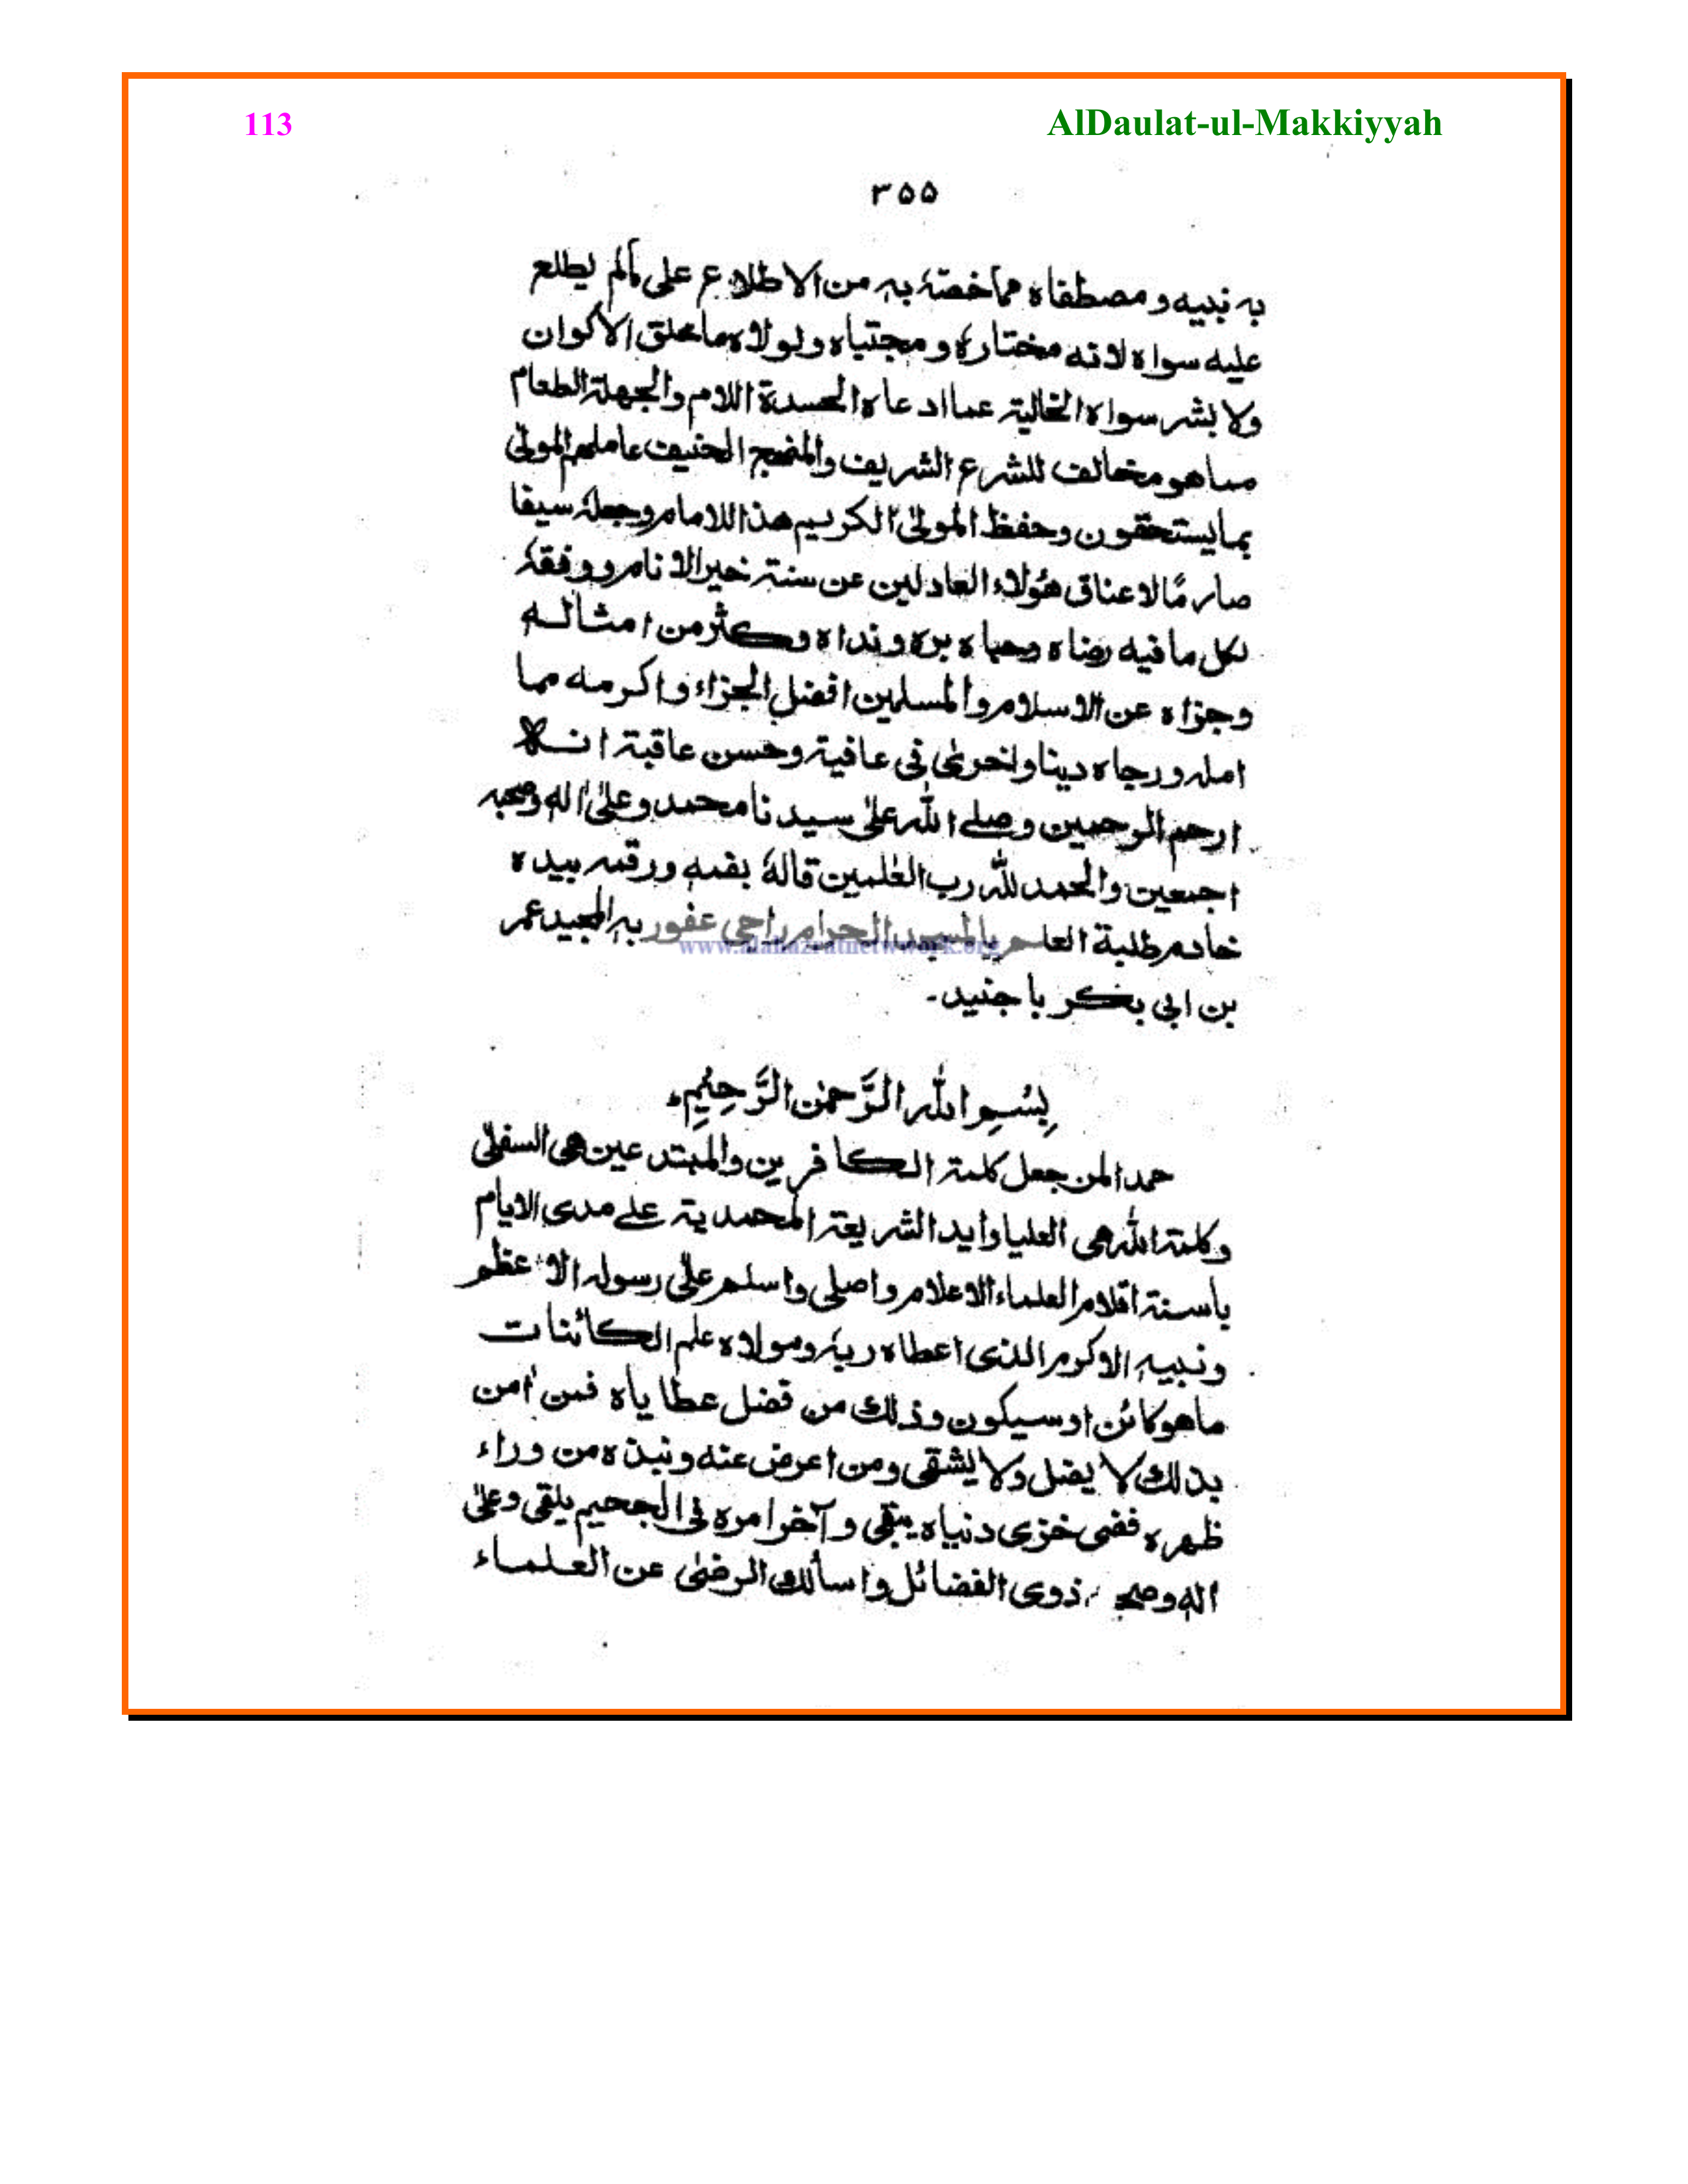 113 AlDaulat-ul-Makkiyyah
۳۵۵
به نبيه و مصطفاه مما خصّهٗ به من الاطلاع على مالم يطلع
عليه سواه لانه مختارهٗ و مجتباه ولولاه ما خلق الأكوان
ولا بشر سواه الخالية عما ادعاه الحسدة اللام والجهلة الطعام
مما هو مخالف للشرع الشريف والمنهج الحنيف عاملهم المولىٰ
بما يستحقون وحفظ المولىٰ الكريم هذا الامام وجعلهٗ سيفا
صارمًا لاعناق هٰؤلاء العادلين عن سنة خير الانام ووفقهٗ
لكل ما فيه رضاه وحباه بره ونداه وكثر من امثاله
وجزاه عن الاسلام والمسلمين افضل الجزاء واكرمه مما
امله ورجاه دينا واخرىٰ فى عافية وحسن عاقبة انه
ارحم الرحمين وصلے الله علىٰ سيدنا محمد وعلىٰ اٰله وصحبه
اجمعين والحمد لله رب العٰلمين قالهٗ بفمه ورقمه بيده
خادم طلبة العلم بالمسجد الحرام راجى عفور به المجيد عمر
www.alahazratnetwork.org
بن ابى بكر باجنيد۔
بِسْمِ اللهِ الرَّحمٰنِ الرَّحِيْمِؕ
حمدا لمن جعل كلمة الكافرين والمبتدعين هى السفلىٰ
وكلمة الله هى العليا وأيد الشريعة المحمدية علے مدى الايام
بأسنة اقلام العلماء الاعلام واصلى واسلم علىٰ رسوله الاعظم
ونبيه الاكرم الذى اعطاه ربهٗ ومولاه علم الكائنات
ماهو كائن او سيكون وذلك من فضل عطاياه فمن اٰمن
بذلك لا يضل ولا يشقى ومن اعرض عنه ونبذه من وراء
ظهره ففى خزى دنياه يبقى وآخر امره فى الجحيم يلقى وعلىٰ
اٰله وصحبه ذوى الفضائل واسألك الرضىٰ عن العلماء